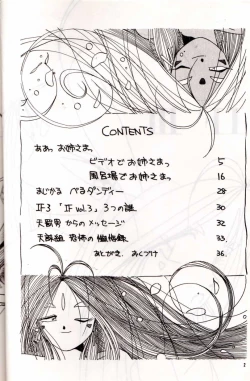 CONTENTS
ああっ お姉さまっ
ビデオでお姉さまっ 5
風呂場でお姉さまっ 16
まじかる べるダンディー 28
IF3 「IF vol.3」 3つの謎 30
天野男 からのメッセージ 32
恐怖の 33
あとがき. おくづけ 36.